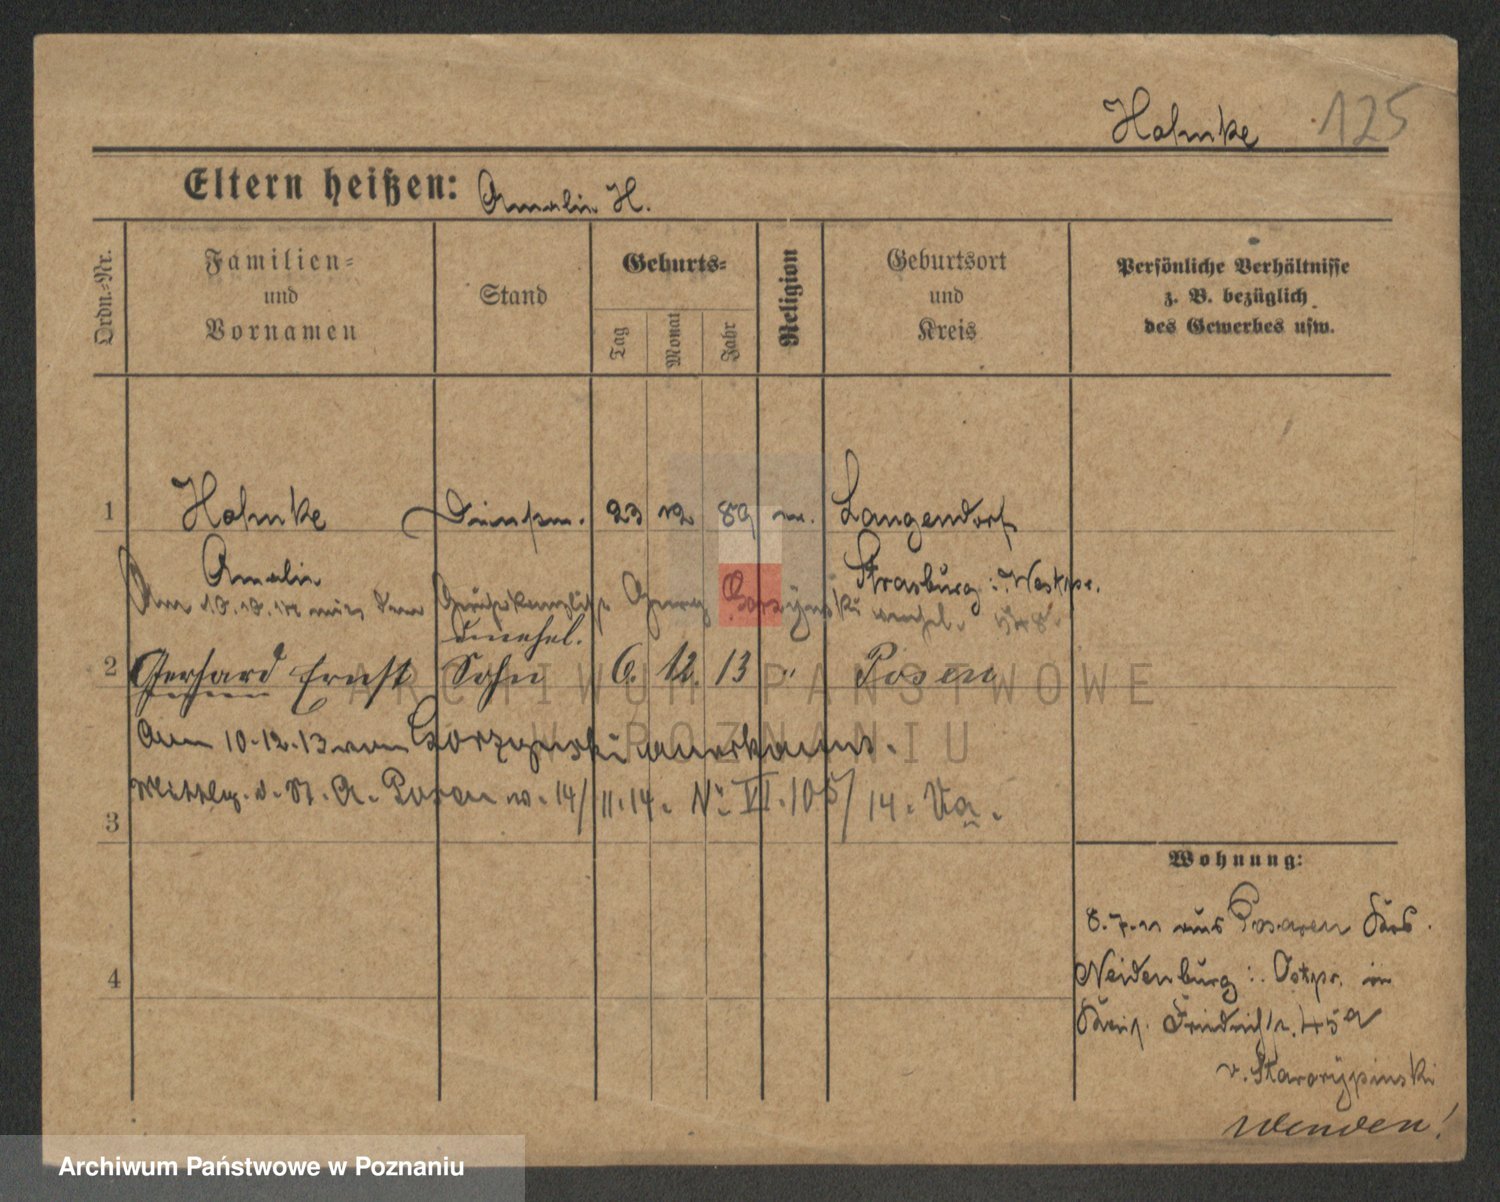 Hahnke 125
Eltern heißen: Amalie H.
Ordn.-Nr.
Familien-
und
Vornamen
Stand
Geburts-
Tag
Monat
Jahr
Religion
Geburtsort
und
Kreis
Persönliche Verhältnisse
z. B. bezüglich
des Gewerbes usw.
1 Hahnke Dienstm. 23 12 89 ev. Langendorf
Amalie Strasburg : Westpr.
Am mit dem Georg Gorzynski verehel.
unehel.
2 Gerhard Ernst Sohn 6. 12. 13 " Posen
Am 10.12.13 von Gorzynski anerkannt.
Mittlg. d. St. A. Posen v. 14/11.14. No VI.105/14. Va.
3
4
ARCHIWUM PAŃSTWOWE
W POZNANIU
Wohnung:
8.7.11 aus Posaren Krs.
Neidenburg : Ostpr. in
Friedrichstr. 45a
v. Starorypinski
wenden!
Archiwum Państwowe w Poznaniu